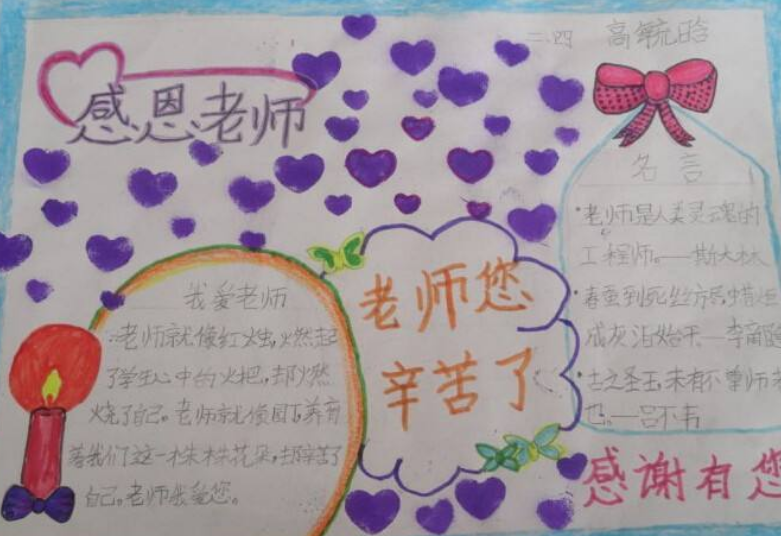 二.四 高毓晗
感恩老师
名言
•老师是人类灵魂的
工程师。——斯大林
•春蚕到死丝方尽蜡炬
成灰泪始干—李商隐
•古之圣王,未有不尊师者
也。—吕不韦
我爱老师
老师就像红烛,燃起
了学生心中的火把,却燃
烧了自己。老师就像园丁,养育
着我们这一株株花朵,却辛苦了
自己。老师我爱您。
老师您
辛苦了
感谢有您